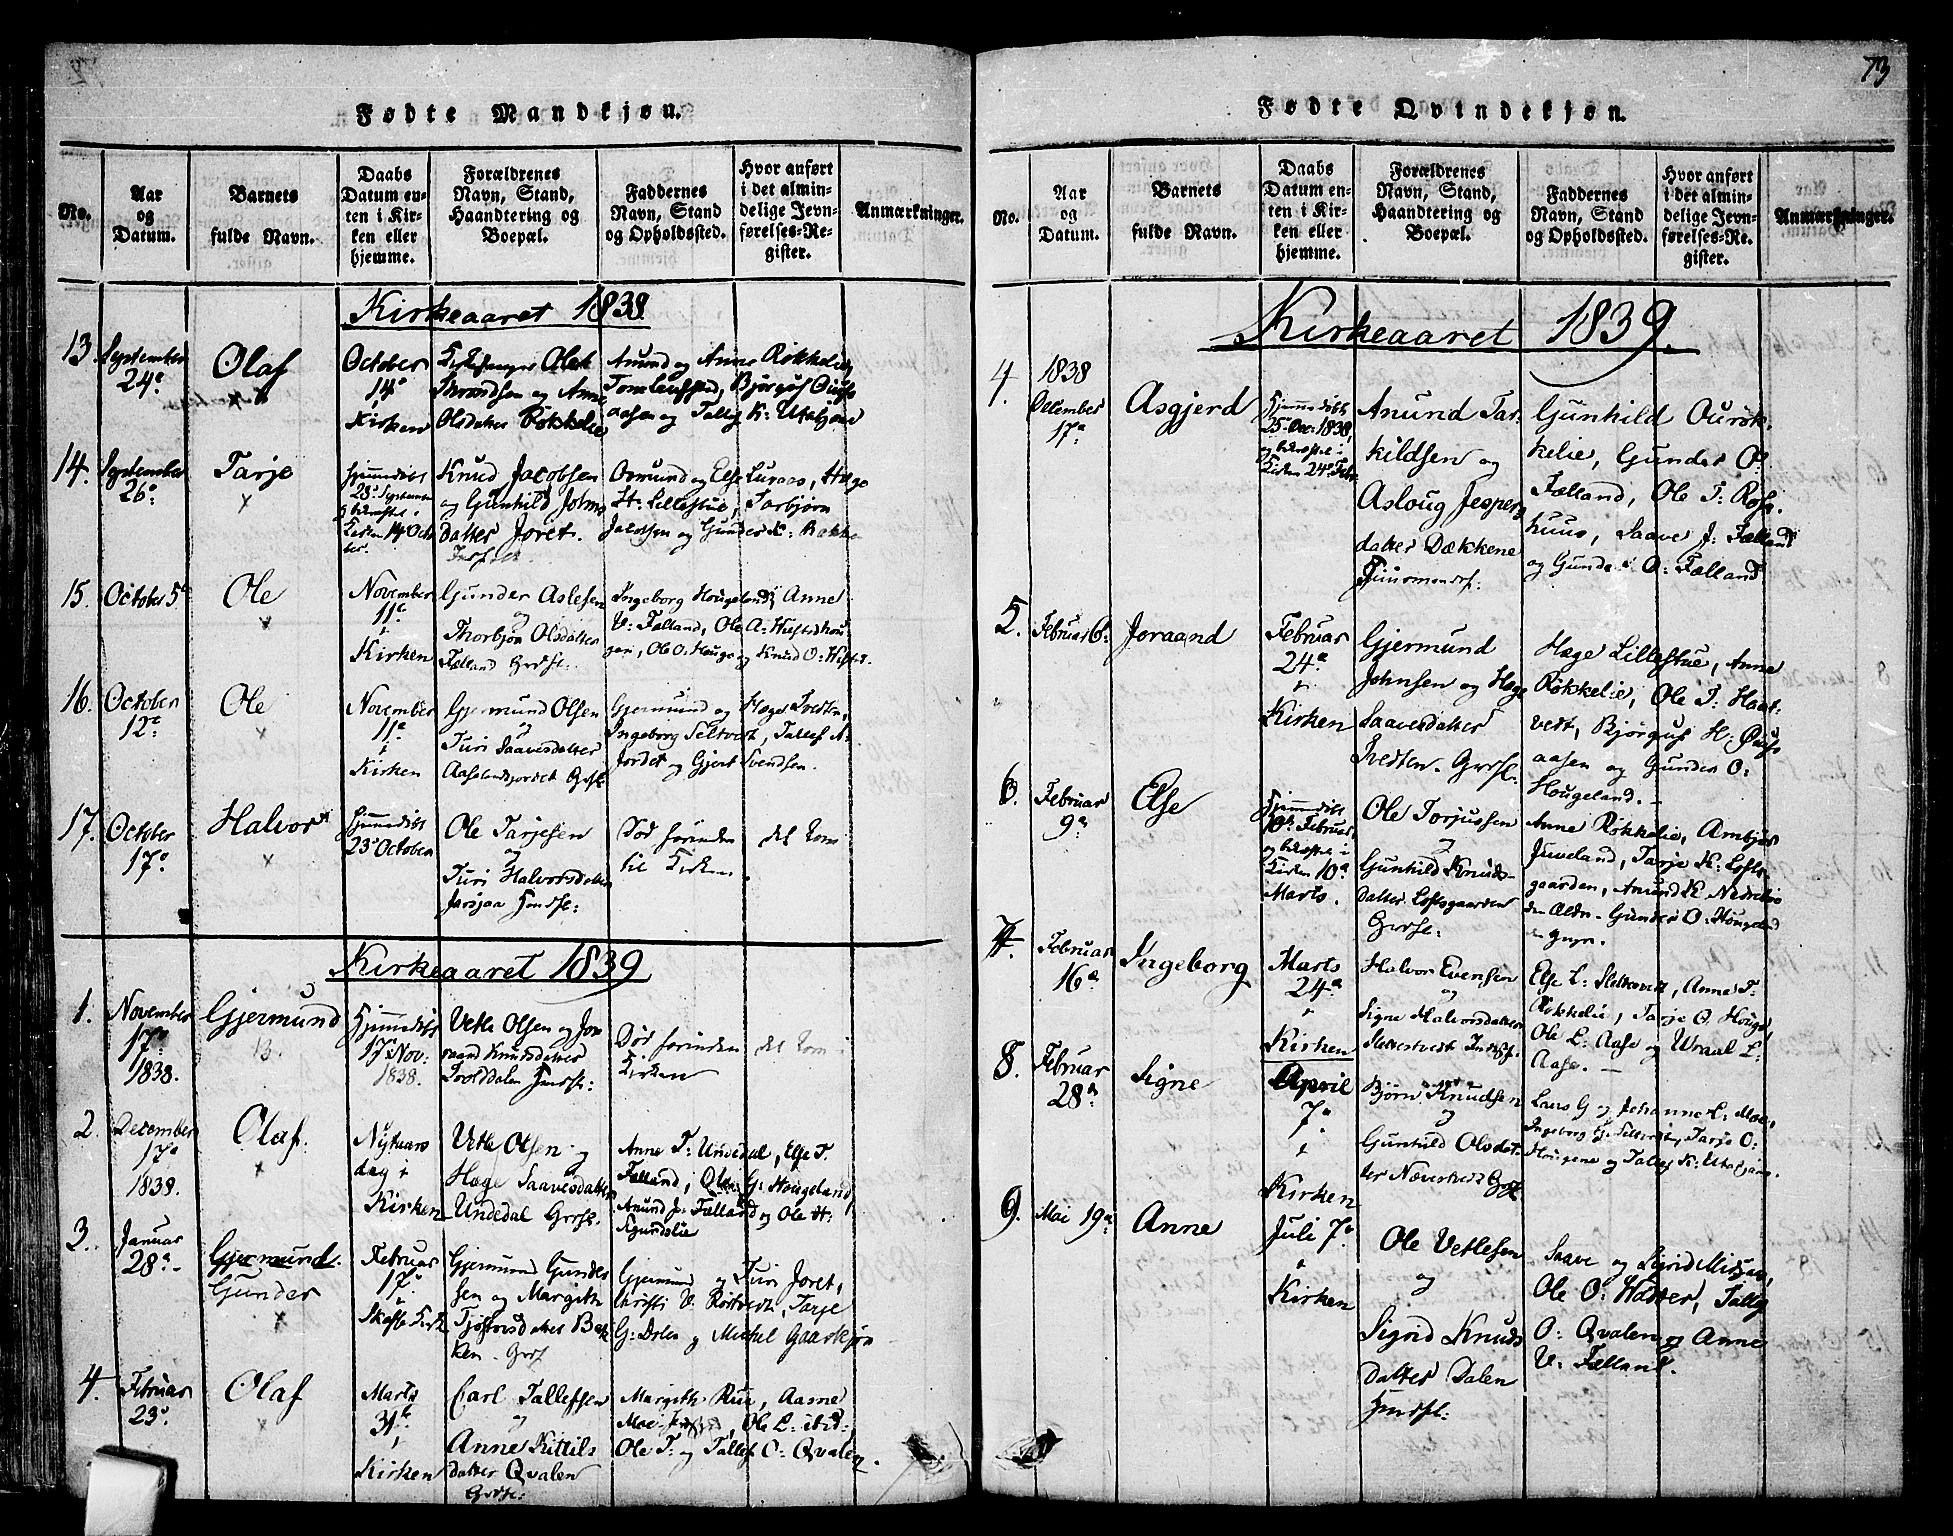 73
Fødte Mandkjøn.
No.
Aar
og
Datum.
Barnets
fulde Navn.
Daabs
Datum en-
ten i Kir-
ken eller
hjemme.
Forældrenes
Navn, Stand,
Haandtering og
Boepæl.
Faddernes
Navn, Stand
og Opholdssted.
Hvor anført
i det almin-
delige Jevn-
førelses-Re-
gister.
Anmærkninger.
Kirkeaaret 1838
13
September
24e
Olaf
October
14e
i
Kirken
Olsdatter Røkkelie
Anund og Anne Røkkelie
14.
September
26e
Tarje
Hjemmedøbt
28e September
Kirken 14 Octo
ber.
Knud Jacobsen
og Gunhild Johns
datter Joret.
Osmund og Else Luraas, Hæge
H: Lillestue, Torbjørn
Jacobsen og Gunder K: Bakke
15.
October 5e
Ole
November
11e
i
Kirken
Gunder Aslesen
og
Thorbjør Olsdatter
Fælland Grdsf:
Ingeborg Hougeland, Anne
V: Fælland, Ole A:
gen, Ole O: Houge og Knud O:
16.
October
12e
Ole
November
11e
i
Kirken
Gjermund Olsen
og
Turi Saavesdatter
Grdsf:
Gjermund og Hæge Tvedten,
Ingeborg Seltveit, Tallef A:
Jordet og Gjert Svendsen.
17.
October
17e
Halvor
Hjemmedøbt
23e October
Ole Tarjesen
og
Turi Halvorsdatter
Død førinden det kom
til Kirken.
Kirkeaaret 1839
1.
November
17e
1838.
Gjermund
Hjemmedøbt
17e Nov:
1838.
Vetle Olsen og Jo
raand Knudsdatter
Død førinden det kom
Kirken
2.
December
17e
1838.
Olaf.
Nytaars
dag i
Kirken
Vetle Olsen og
Hæge Saavesdatter
Undedal Grdsf.
Anne T: Undedal, Else T.
Fælland, Ole G: Hougeland
Anund J: Fælland og Ole H:
Sgundslie
3.
Januar
28e
Gjermund.
Gunder
Februar
17e
i
Gjermund Gunder
sen og Margith
Gjermund og Turi Joret,
G: Dalen og Michel
4.
Februar
23e
Olaf
Marts
31e
i
Kirken
Carl Tallefsen
og
Anne Kittils
datter Qvalen
Grdsf:
Margith Rue, Aasne
Ole L: ibid:
Ole T: og Tallef O: Qvalen.
Fødte Qvindekjøn.
No.
Aar
og
Datum.
Barnets
fulde Navn.
Daabs
Datum en-
ten i Kir-
ken eller
hjemme.
Forældrenes
Navn, Stand,
Haandtering og
Boepæl.
Faddernes
Navn, Stand
og Opholdssted.
Hvor anført
i det almin-
delige Jevn-
førelses-Re-
gister.
Anmærkninger.
Kirkeaaret 1839.
4.
1838
December
17e
Asgjerd
Hjemmedøbt
25 Dec: 1838,
og bekræftet i
Kirken 24e Febr
Anund Tar-
kildsen og
Aslaug Jespers
datter Dækkene
Gunhild Ourøk-
kelie, Gunder O:
Fælland, Ole T: Ros-
huus, Saave J: Fælland
og Gunder O: Fælland
5.
Februar 6e
Joraand
Februar
24e
i
Kirken
Gjermund
Johnsen og Hæge
Saavesdatter
Tvedten. Grdsf:
Hæge Lillestue, Anne
Røkkelie, Ole T: Haat-
vedt, Bjørguf H:
aasen og Gunder O:
Hougeland.
6.
Februar
9e
Else
Hjemmedøbt
10e Februar
og bekræftet i
Kirken 10e
Marts.
Ole Torjussen
og
Gunhild Knuds-
datter Loftsgaarden
Grdsf:
Anne Røkkelie, Ambjør
Juveland, Tarje K: Lofts-
gaarden, Anund K.
den Ældr. Gunder O: Hougeland
7.
Februar
16e
Ingeborg
Marts
24e
i
Kirken
Halvor Evensen
og
Signe Halvorsdatter
Sletteveit
Else L: Sletteveit, Anne T:
Røkkelie, Tarje O: Houge,
Ole L: Aase og Wraal L:
Aase.
8.
Februar
28e
Signe
April
7e
i
Kirken
Bjørn Knudsen
og
Gunhild Olsdat
ter
Lars G og Johanne L:
Ingeborg G: Tarje O:
Hougene og Tallef K:
9.
Mai 19e
Anne
Juli 7e
i
Kirken
Ole Vetlesen
og
Sigrid Knuds
datter Dalen
Saave og Sigrid
Ole O: Tallef
O: Qvalen og Anne
V: Fælland.